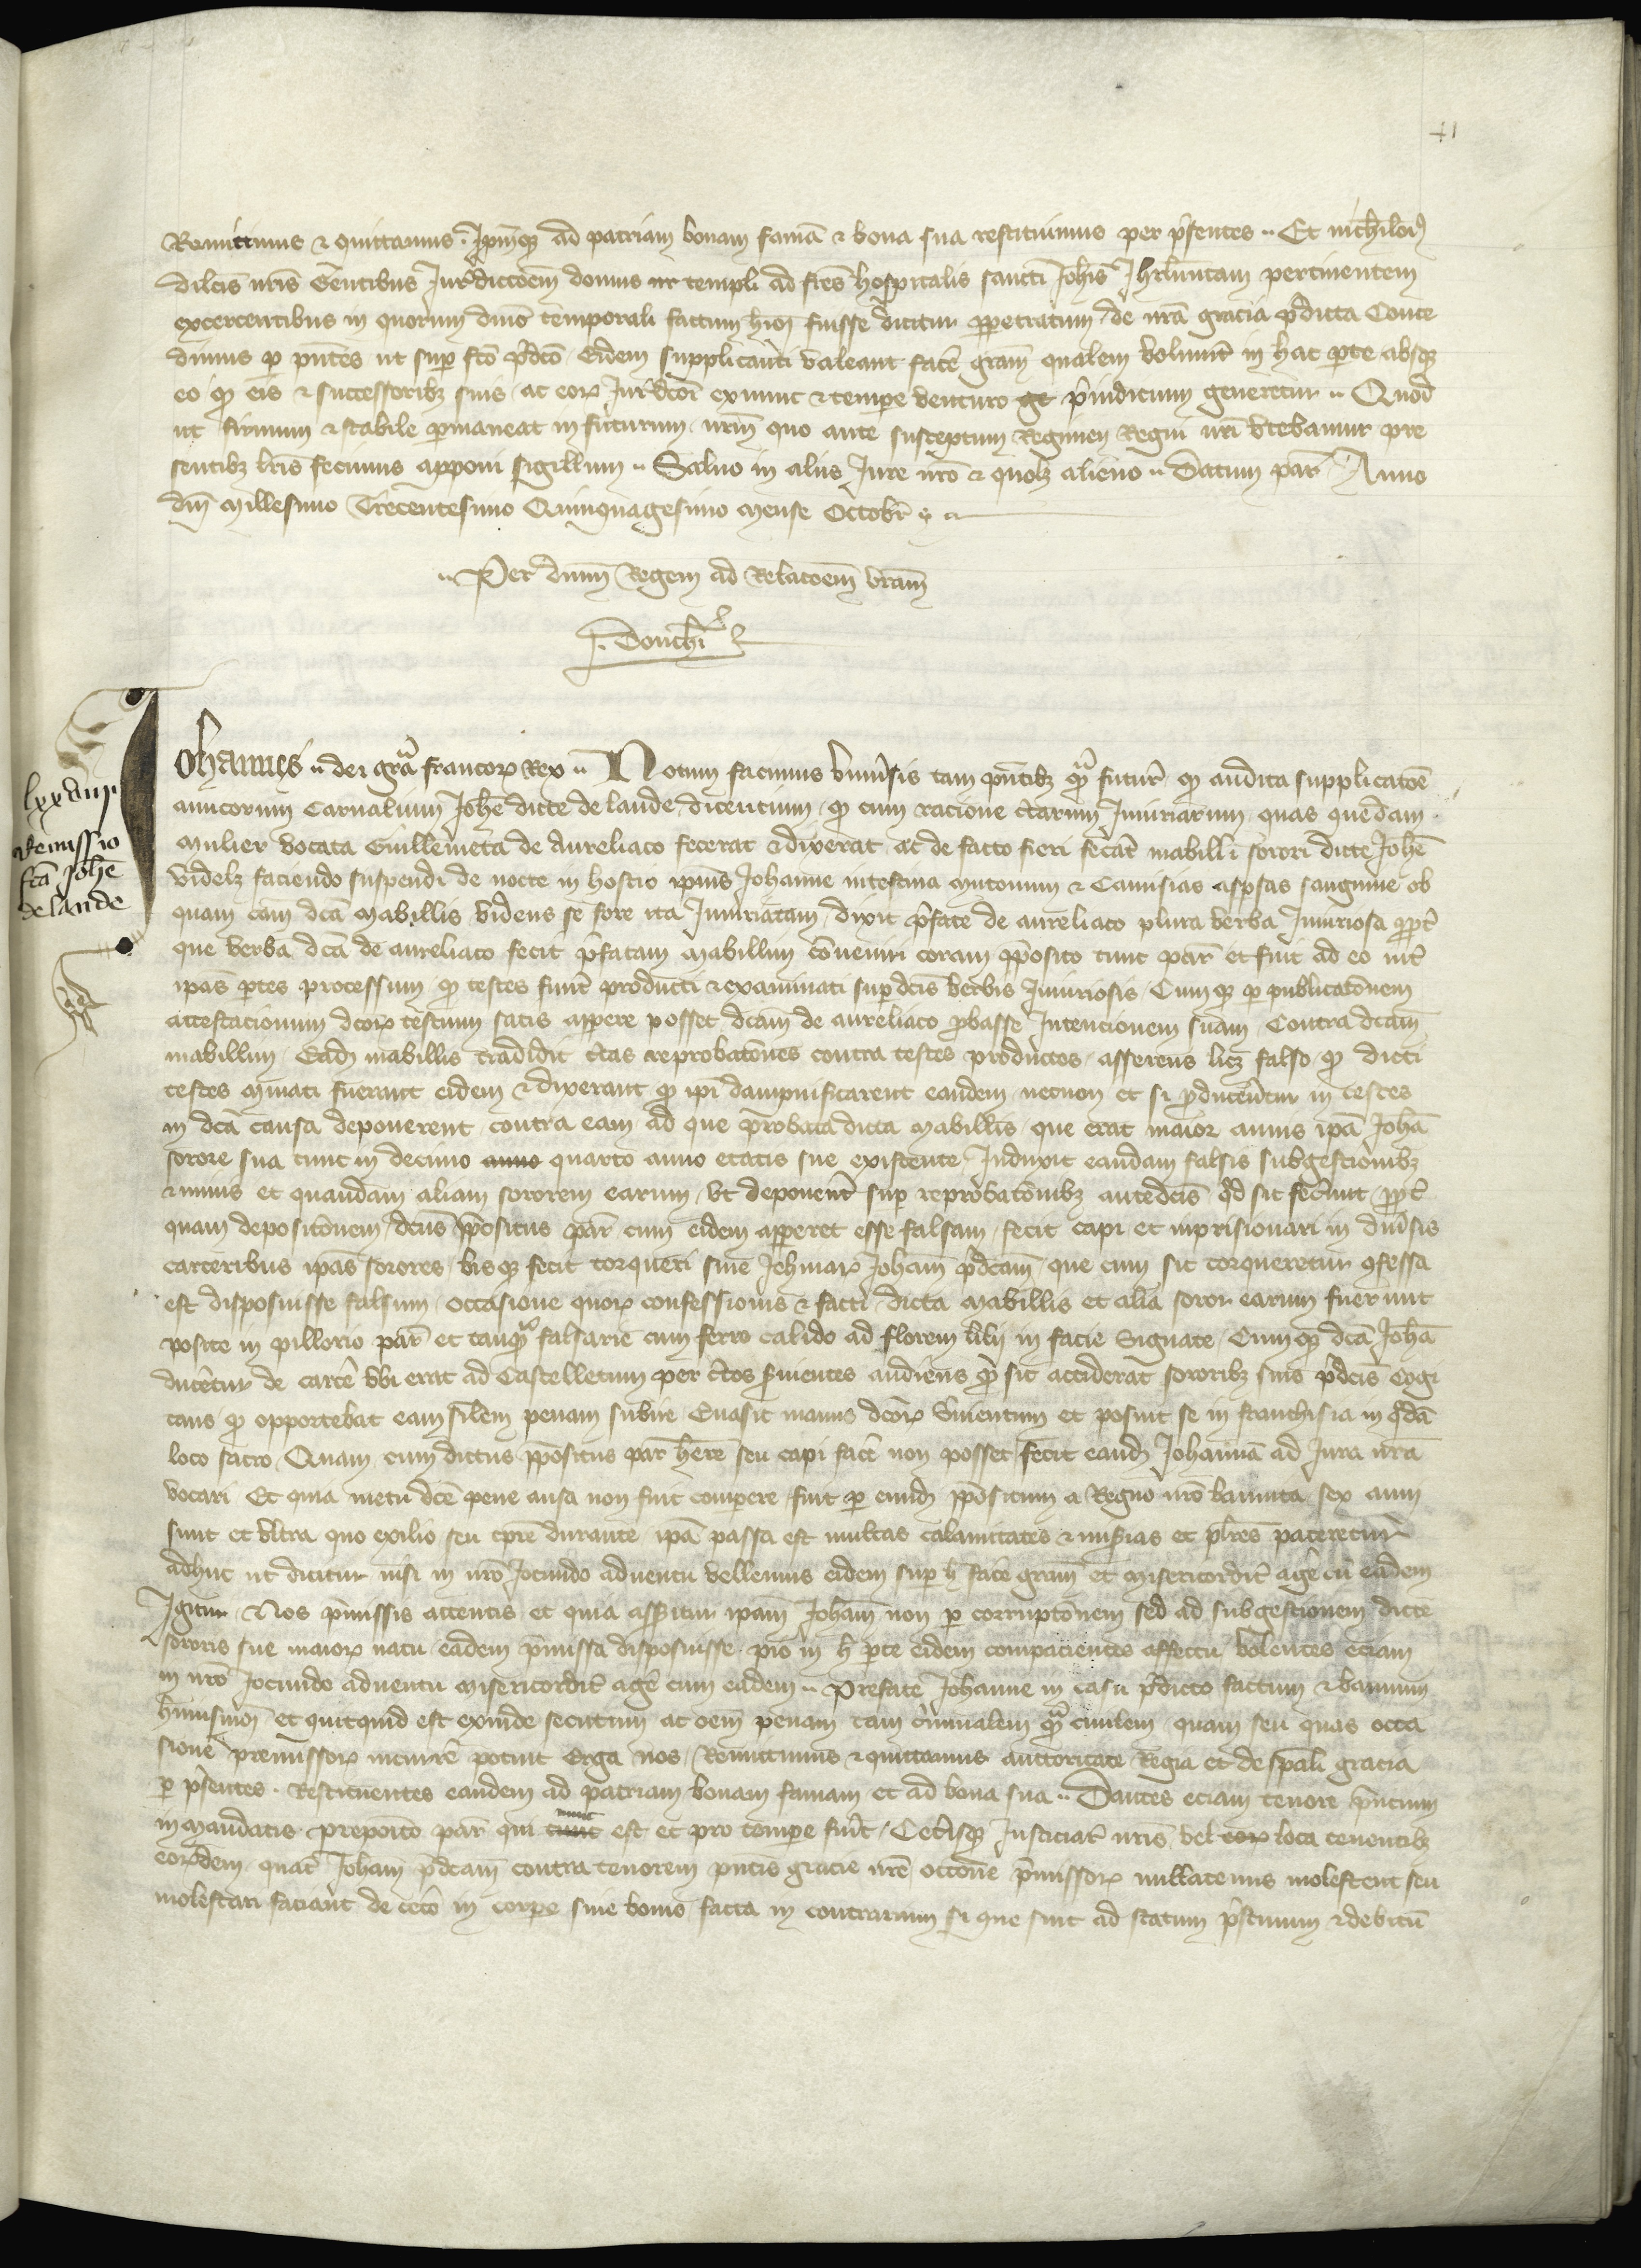 41
Remittimus & quittamus. Ipmq3 ad patriam bonam famā & bona sua restituimus per p̄sentes .. Et nichilo
dilcis nr̄is Gentibus Jur̄dictōem domus templi ad fr̄es hospitalis sancti Joh̄is Jhrlmitam pertinentem
excercentibus in quorum dmō temporali factum hīoī fuisse dicitur ꝑpetratum, de nr̄a gracia p̄dicta Conce
dimus ꝑ pn̄tes ut suꝑ fcō p̄dcō Eidem supplicanti valeant facē gram̄ qualem voluint in hac ꝑte absq3
eo ꝙ eis & successorib3 suis ac eoꝝ Jur̄dcōi exnunc & tempe venturo ge p̄iudicium generetur .. Quod
ut firmum & stabile ꝑmaneat in futurum nr̄m quo ante susceptum Regimen Regni nr̄i utebamur pre
sentib3 lr̄is fecimus apponi sigillum .. Salvo in aliis Jure nr̄o & quol3 alieno .. Datum par̄ Anno
dn̄i Millesimo Trecentesimo Quinquagesimo Mense Octobr̄
.. Per dnm̄ Regem ad Relacōem vram̄
J. Douchī
lxxxiiij.
Remissio
fcā Joh̄e
de lande
Johannes .. dei gr̄a francoꝝ Rex .. Notum facimus univ̄sis tam pn̄tib3 ꝙ̄ futur̄ ꝙ audita supplicacōe
amicorum Carnalium Joh̄e dicte de lande dicentium ꝙ cum racione c̄tarum Iniuriarum quas quedam
Mulier vocata Guillemeta de Aureliaco fecerat & dixerat ac de facto fieri fec̄at mabilli sorori dicte Joh̄e
videl3 faciendo suspendi de nocte in hostio ipius Johanne intestina mutonum & Camisias aspersas sanguine ob
quam cām dcā Mabillis videns se fore ita Iniuriatam, dixit p̄fate de aureliaco plura verba Iniuriosa ꝓpt̄
que verba dcā de aureliaco fecit p̄fatam Mabillim cōveniri coram p̄posito tunc par̄ et fuit ad eo int̄
ipas ꝑtes processum ꝙ testes fuint producti & examinati suꝑ dcīs verbis Iniuriosis Cumq3 ꝑ publicacōnem
attestacionum dcoꝝ testium satis apꝑere posset dcam̄ de aureliaco ꝓbasse Intencionem suam Contra dcam̄
mabillim Ead3 mabillis tradidit c̄tas reprobacōnes contra testes productos asserens lic3 falso ꝙ dicti
testes minati fuerant eidem & dixerant ꝙ ipi dampnificarent eandem necnon et si ꝓducentur in testes
in dcā causa deponerent contra eam ad que ꝓbanda dicta Mabillis que erat maior annis ipā Joh̄ā
sorore sua tunc in decimo anno quarto anno etatis sue existente Induxit eandam falsis subgestionib3
& minis et quandam aliam sororem earum ut deponent suꝑ reprobacōnib3 antedcīs qd sic fecerunt ꝓpt̄
quam deposicōnem dcus p̄positus par̄ cum eidem apꝑeret esse falsam fecit capi et inprisionari in div̄sis
carceribus ipas sorores bisq3 fecit torqueri sive Jehinaꝝ Joham̄ p̄dcam̄ que cum sic torqueretur ꝯfessa
est disposuisse falsum occasione quoꝝ confessionis & facti dicta Mabillis et alia soror earum fuerunt
posite in pillorio par̄ et tanq̄ falsarie cum ferro calido ad florem lilii in facie Signate Cumq3 dcā Joh̄ā
duceretur de carcē ubi erat ad Castelletum per c̄tos s̄vientes audiens ꝙ sic acciderat sororib3 suis p̄dcīs Cogi
tans ꝙ opportebat eam silem penam subire Evasit manus dcoꝝ s̄vientum et posuit se in franchisia in qdā
loco sacro Quam cum dictus p̄positus par̄ her̄e seu capi facē non posset fecit eand3 Johannā ad Jura nr̄a
vocari Et quia metu dcē pene ausa non fuit compere fuit ꝑ eund3 p̄positum a Regno nr̄o bannita sex anni
sunt et ultra quo exilio seu tp̄re durante ipā passa est multas calamitates & mis̄ias et plr̄es pateretur
adhuc ut dicitur nisi in nr̄o Jocundo adventu vellemus eidem suꝑ h̄ facē gram̄ et misericordit̄ agē cū eadem
Igitur Nos p̄missis attentis et quia assitur ipam̄ Joham̄ non ꝑ corrupcōnem sed ad subgestionem dicte
sororis sue maioꝝ natu eadem p̄missa disposuisse pio in h̄ ꝑte eidem compacientes affectu volentes eciam
in nr̄o Jocundo adventu misericordit̄ agē cum eadem .. Prefate Johanne in casu p̄dicto factum & bannum
hīusmōi et quitquid est exinde secutum ac oēm penam tam c̄iminalem ꝙ̄ civilem quam seu quas occa
sione premissoꝝ incurrē potuit Erga nos Remittimus & quittamus auctoritate Regia et de spāli gracia
ꝑ p̄sentes . Restituentes eandem ad patriam bonam famam et ad bona sua .. Dantes eciam tenore pn̄tium
in mandatis prepoīto par̄ qui tunc nunc est et pro tempe fuit Cetisq3 Justiciar̄ nr̄is vel eoꝝ loca tenentib3
eoꝝdem quat̄ Joham̄ p̄dcam̄ contra tenorem pn̄tis gracie nr̄e occōne p̄missoꝝ nullatenus molestent seu
molestari faciant de cetō in corpe sive bonis facta in contrarium si que sint ad statum p̄stinum & debitū